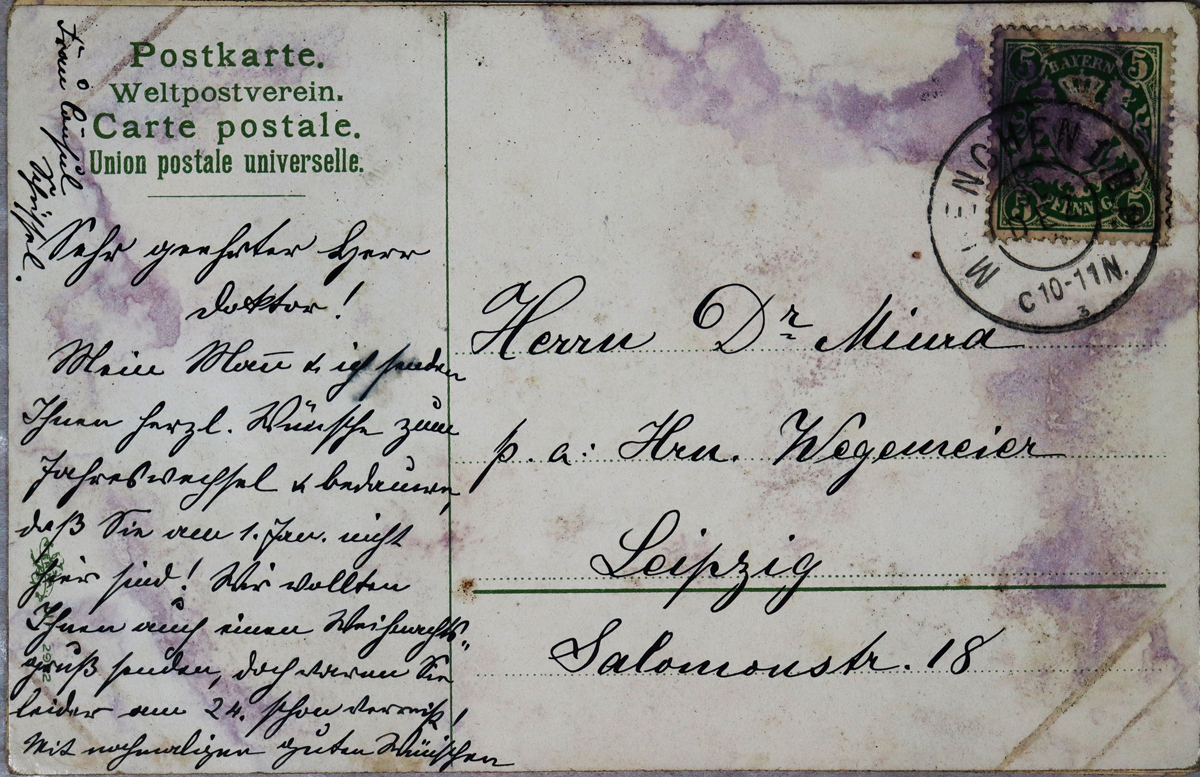 Postkarte.
Weltpostverein.
Carte postale.
Union postale universelle.
Sehr geehrter Herr
Doktor!
Mein Mann & ich senden
Ihnen herzl. Wünsche zum
Jahreswechsel & bedauern,
daß Sie am 1. Jan. nicht
hier sind! Wir wollten
Ihnen auch einen Weihnachts-
gruß senden, doch waren Sie
leider am 24. schon verreist!
Mit nochmaligen guten Wünschen
Frau
2932
5 BAYERN 5
5 PFENNIG 5
MUENCHEN
DEZ
C 10-11 N.
3
Herrn Dr. Miura
p. a: Hrn. Wegemeier
Leipzig
Salomonstr. 18